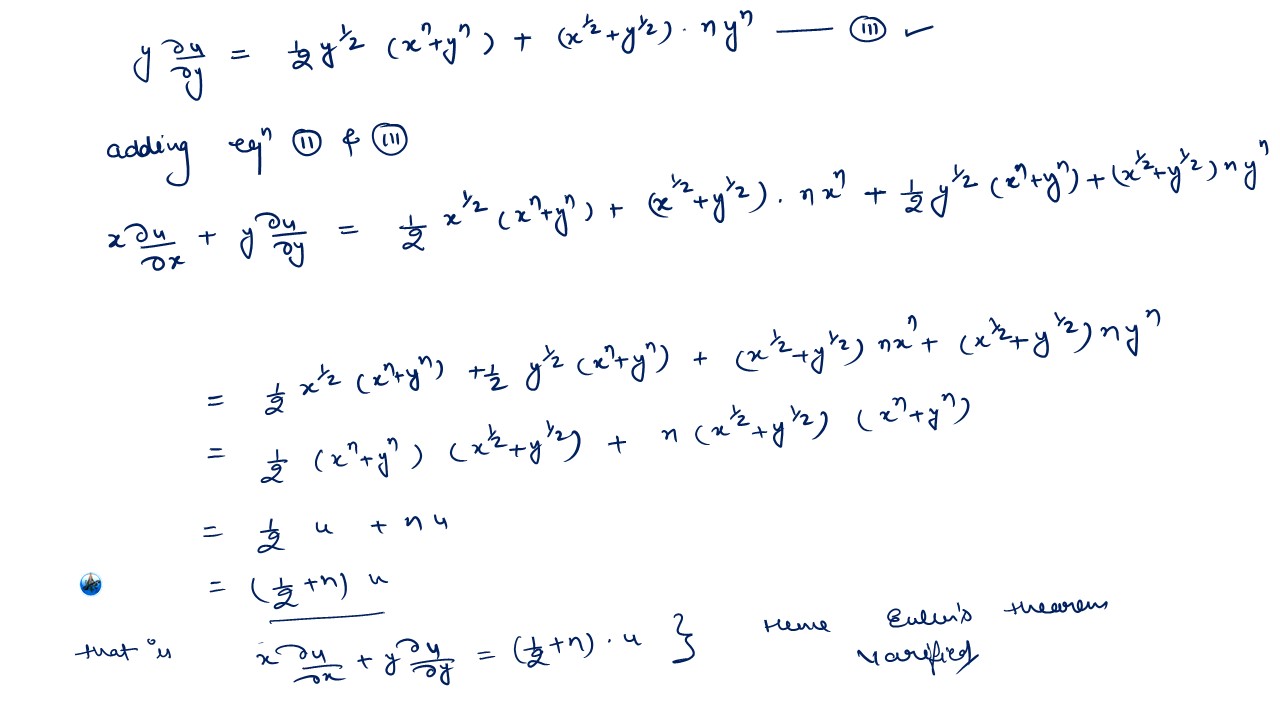 y ∂u/∂y = 1/2 y^1/2 (x^n+y^n) + (x^1/2+y^1/2) · n y^n —— (III) ✓
adding eq^n (II) & (III)
x ∂u/∂x + y ∂u/∂y = 1/2 x^1/2 (x^n+y^n) + (x^1/2+y^1/2) · n x^n + 1/2 y^1/2 (x^n+y^n) + (x^1/2+y^1/2) n y^n
= 1/2 x^1/2 (x^n+y^n) + 1/2 y^1/2 (x^n+y^n) + (x^1/2+y^1/2) n x^n + (x^1/2+y^1/2) n y^n
= 1/2 (x^n+y^n) (x^1/2+y^1/2) + n (x^1/2+y^1/2) (x^n+y^n)
= 1/2 u + n u
= (1/2 + n) u
that is x ∂u/∂x + y ∂u/∂y = (1/2 + n) · u } Hence Euler's theorem
Varified